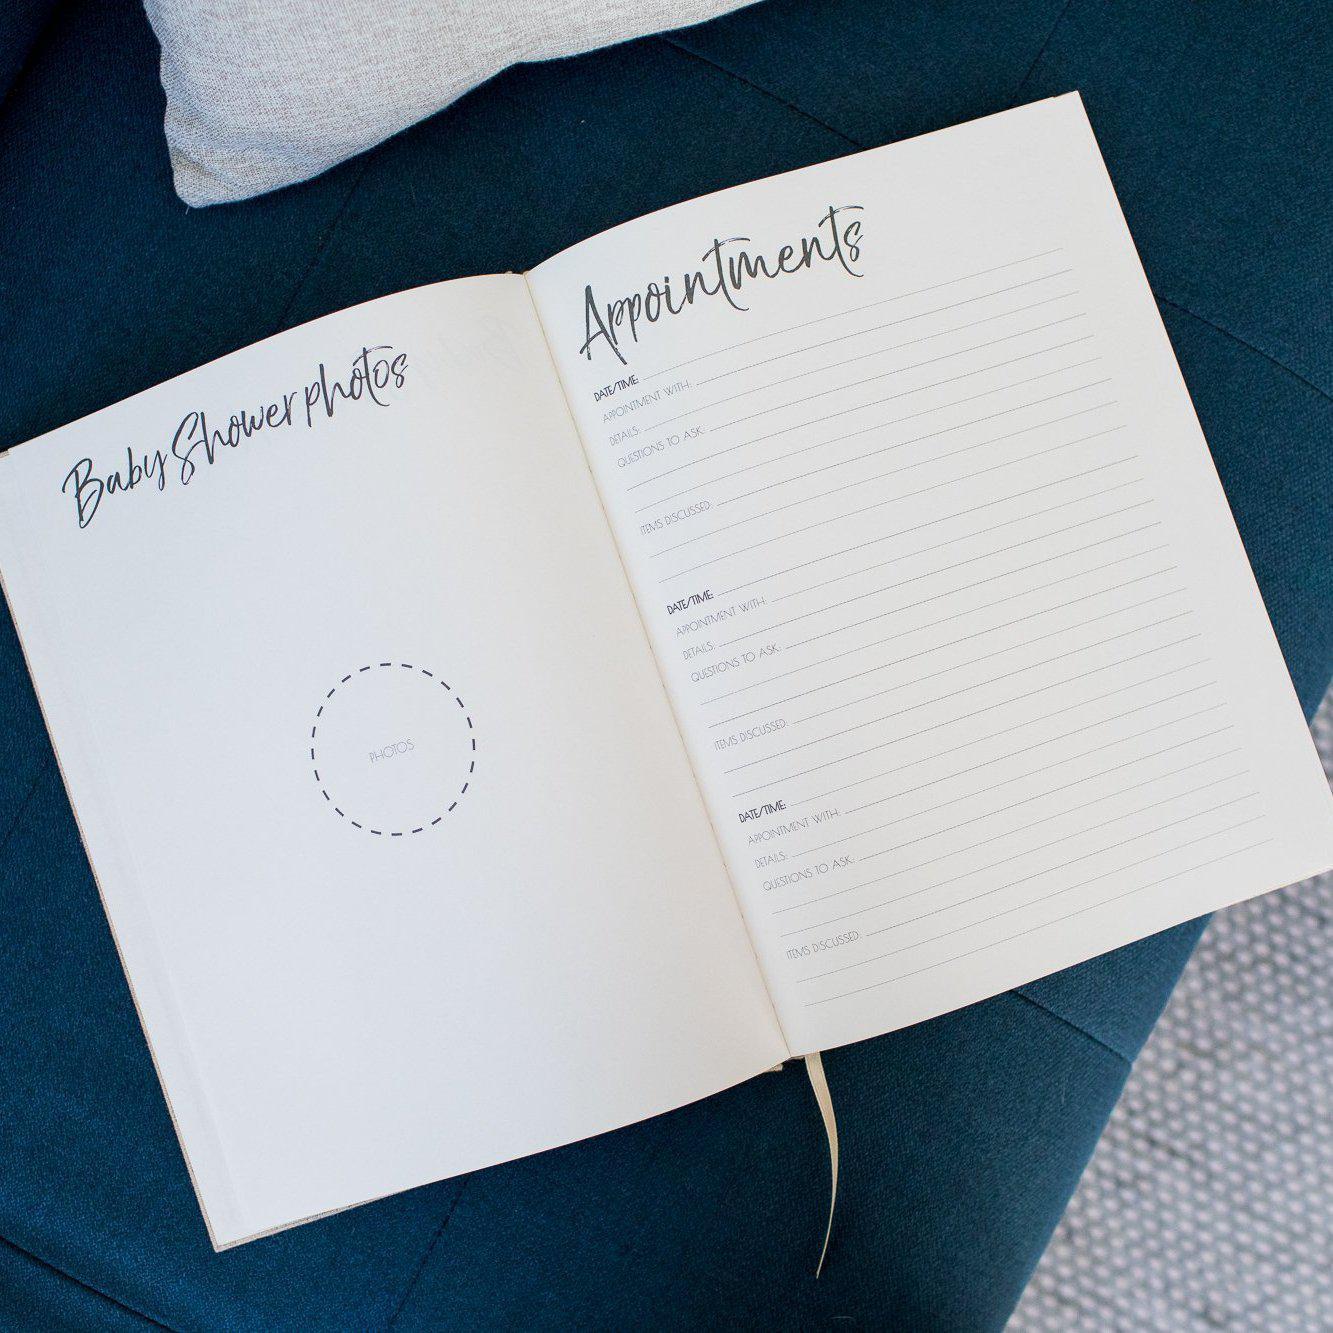 Baby Shower photos
PHOTOS
Appointments
DATE/TIME:
APPOINTMENT WITH:
DETAILS:
QUESTIONS TO ASK:
ITEMS DISCUSSED:
DATE/TIME:
APPOINTMENT WITH:
DETAILS:
QUESTIONS TO ASK:
ITEMS DISCUSSED:
DATE/TIME:
APPOINTMENT WITH:
DETAILS:
QUESTIONS TO ASK:
ITEMS DISCUSSED: